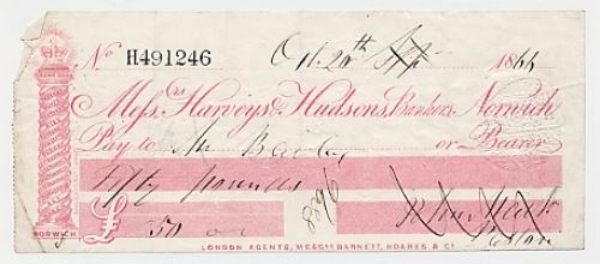 No H491246 Oct. 20th 186
Messrs. Harveys & Hudsons, Bankers, Norwich,
Pay to Mr Bailey or Bearer
Fifty pounds
896
£ 50
NORWICH
LONDON AGENTS, MESSRS BARNETT, HOARES & Co